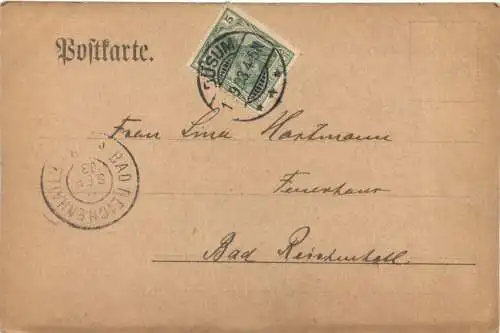 Postkarte.
5
BÜSUM
9 03 4-5N
Frau Lina Hartmann
Feuerhaus
Bad Reichenhall
BAD REICHENHALL
SEP
03